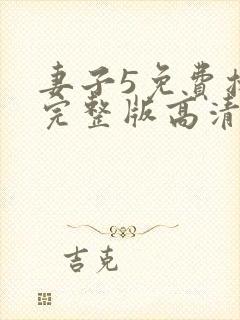 妻子5免费
完整版高清
吉克